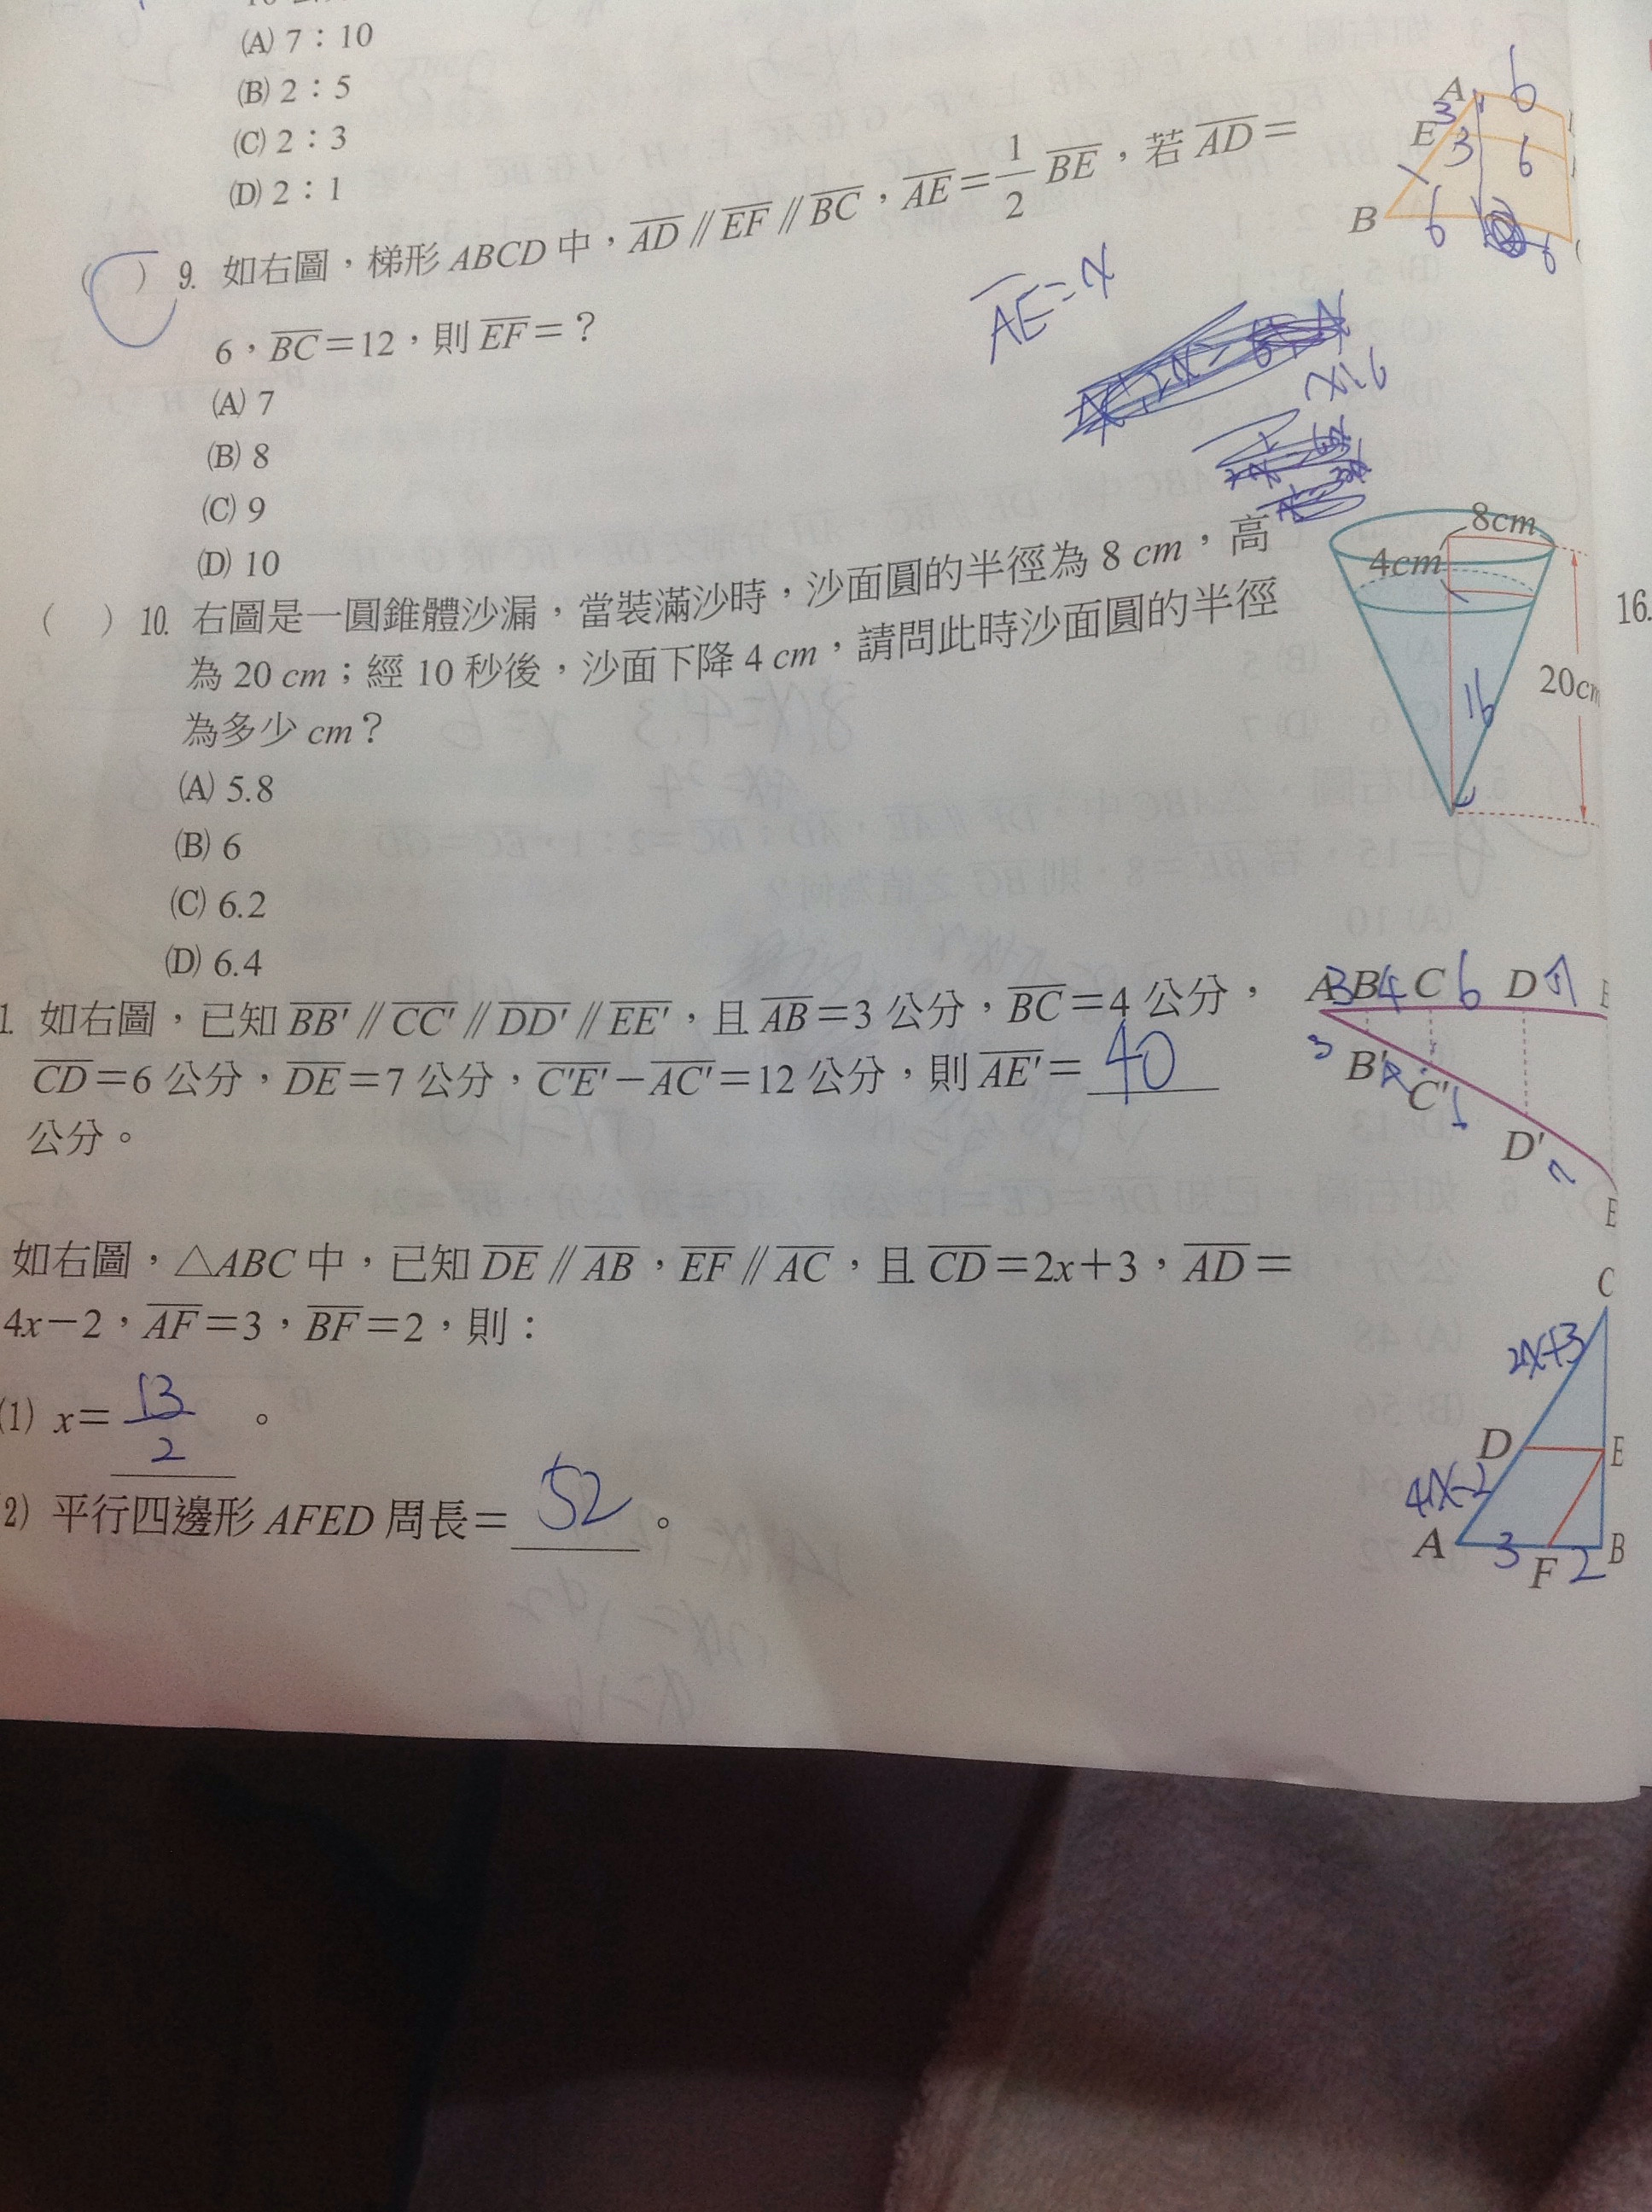 (A) 7：10
(B) 2：5
(C) 2：3
(D) 2：1
( ) 9. 如右圖，梯形ABCD中，AD∥EF∥BC，AE=1/2 BE，若AD=
6，BC=12，則EF=？
(A) 7
(B) 8
(C) 9
(D) 10
A 6
3
E 3 6
B 6 6
AE=x
x=6
( ) 10. 右圖是一圓錐體沙漏，當裝滿沙時，沙面圓的半徑為 8 cm，高
為 20 cm；經 10 秒後，沙面下降 4 cm，請問此時沙面圓的半徑
為多少 cm？
(A) 5.8
(B) 6
(C) 6.2
(D) 6.4
8cm
4cm
16
20cm
16.
1. 如右圖，已知BB'∥CC'∥DD'∥EE'，且AB=3公分，BC=4公分，
CD=6公分，DE=7公分，C'E'-AC'=12公分，則AE'=40
公分。
A 3 B 4 C 6 D
3 B' C'
D'
E
如右圖，△ABC中，已知DE∥AB，EF∥AC，且CD=2x+3，AD=
4x-2，AF=3，BF=2，則：
(1) x=13/2。
2) 平行四邊形AFED周長=52。
C
2x+3
D E
4x-2
A 3 F 2 B